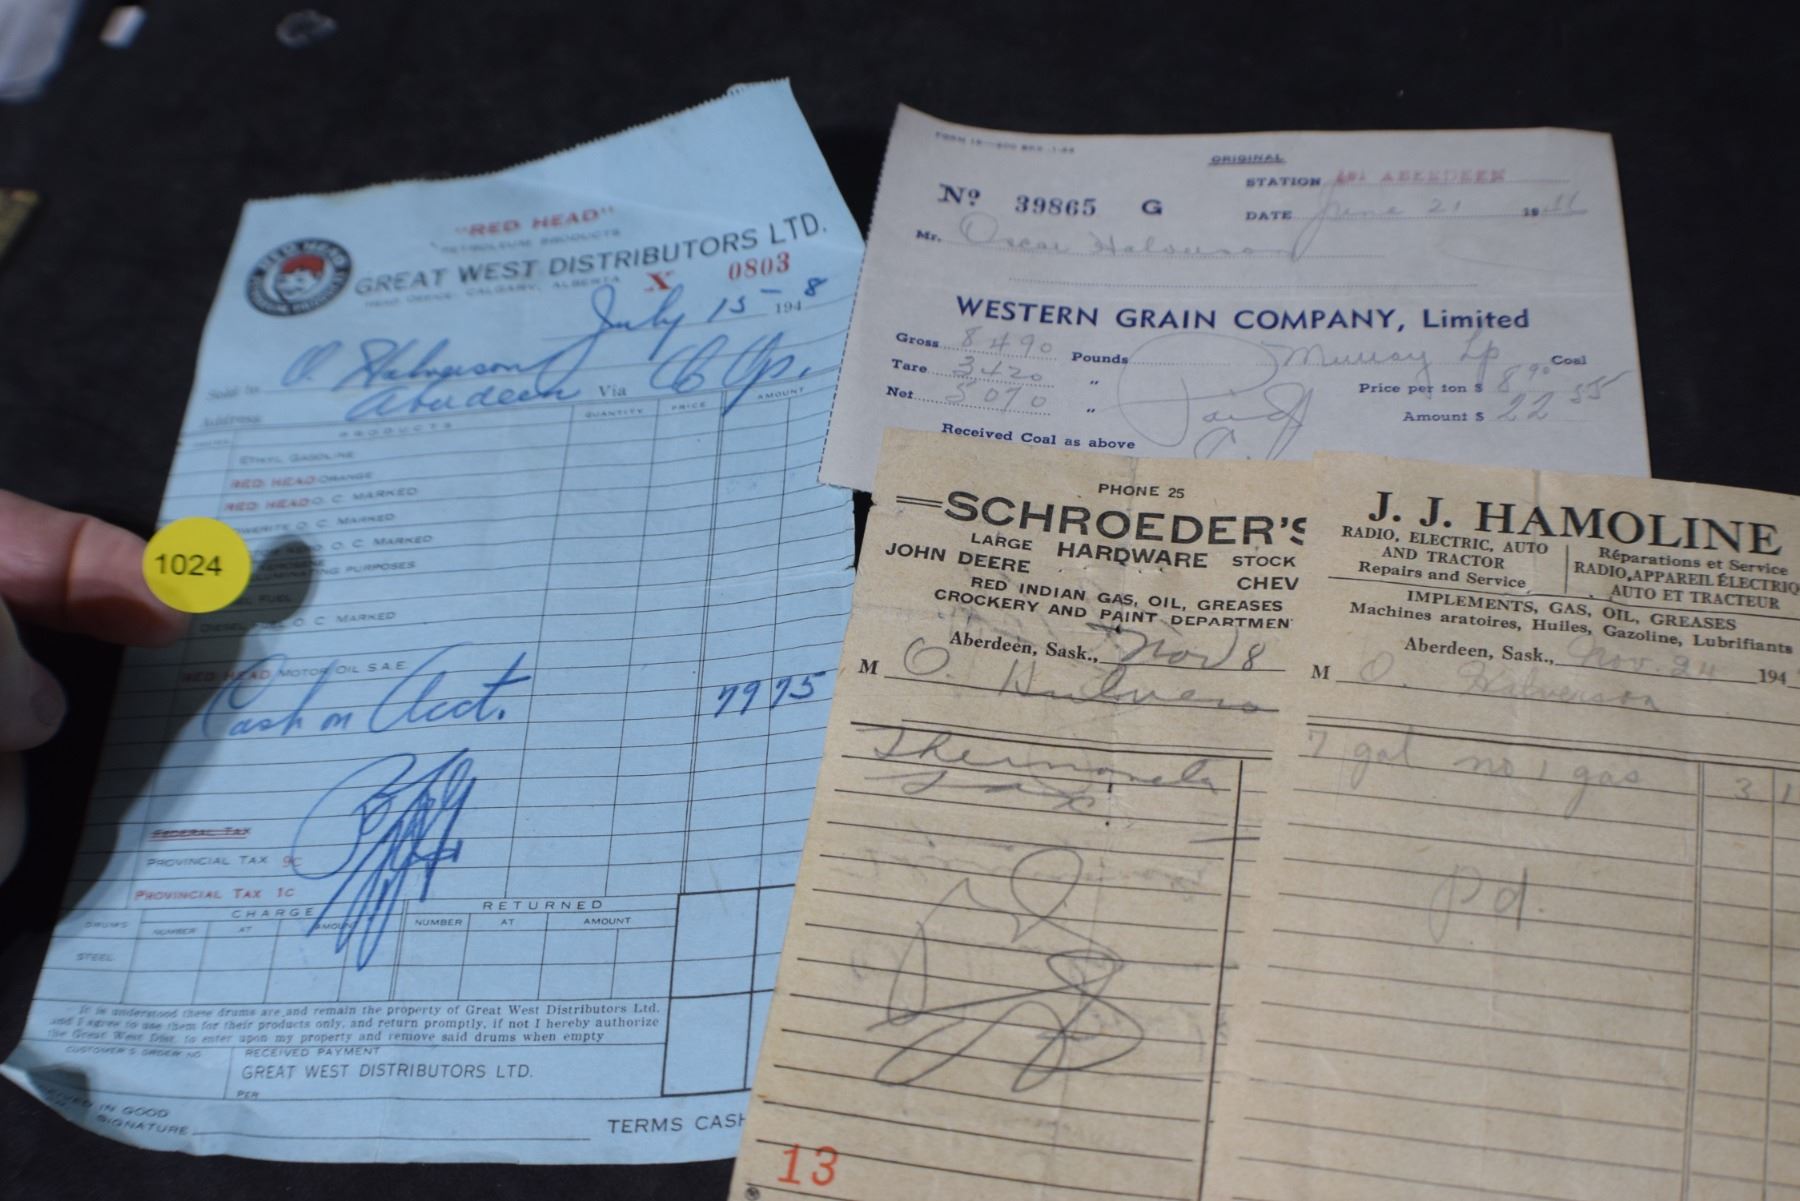 1024
"RED HEAD"
PETROLEUM PRODUCTS
GREAT WEST DISTRIBUTORS LTD.
HEAD OFFICE: CALGARY, ALBERTA
X 0803
July 15 - 1948
Sold to O Halverson
Address Aberdeen Via
PRODUCTS QUANTITY PRICE AMOUNT
ETHYL GASOLINE
RED HEAD ORANGE
RED HEAD O. C. MARKED
O. C. MARKED
O. C. MARKED
ILLUMINATING PURPOSES
FUEL
DIESEL FUEL O. C. MARKED
RED HEAD MOTOR OIL S.A.E.
Cash on Acct. 79 75
FEDERAL TAX
PROVINCIAL TAX 9c
PROVINCIAL TAX 1c
CHARGE RETURNED
DRUMS NUMBER AT AMOUNT NUMBER AT AMOUNT
STEEL
It is understood these drums are and remain the property of Great West Distributors Ltd.
and I agree to use them for their products only, and return promptly, if not I hereby authorize
the Great West Dist. to enter upon my property and remove said drums when empty
CUSTOMER'S ORDER NO
RECEIVED PAYMENT
GREAT WEST DISTRIBUTORS LTD.
PER
IN GOOD
SIGNATURE
TERMS CASH
ORIGINAL
STATION ABERDEEN
No 39865 G
DATE June 21 19
Mr. Oscar Halverson
WESTERN GRAIN COMPANY, Limited
Gross 8490 Pounds Murray Lp Coal
Tare 3420 " Price per ton $ 8 90
Net 5070 " Amount $ 22 55
Paid
Received Coal as above
PHONE 25
SCHROEDER'S
LARGE HARDWARE STOCK
JOHN DEERE CHEV
RED INDIAN GAS, OIL, GREASES
CROCKERY AND PAINT DEPARTMEN
Aberdeen, Sask., Nov 8
M O.
Tax
13
J. J. HAMOLINE
RADIO, ELECTRIC, AUTO
AND TRACTOR
Repairs and Service
Réparations et Service
RADIO, APPAREIL ÉLECTRIQ
AUTO ET TRACTEUR
IMPLEMENTS, GAS, OIL, GREASES
Machines aratoires, Huiles, Gazoline, Lubrifiants
Aberdeen, Sask., Nov. 24 194
M O. Halverson
7 gal no 1 gas 3 1
pd.